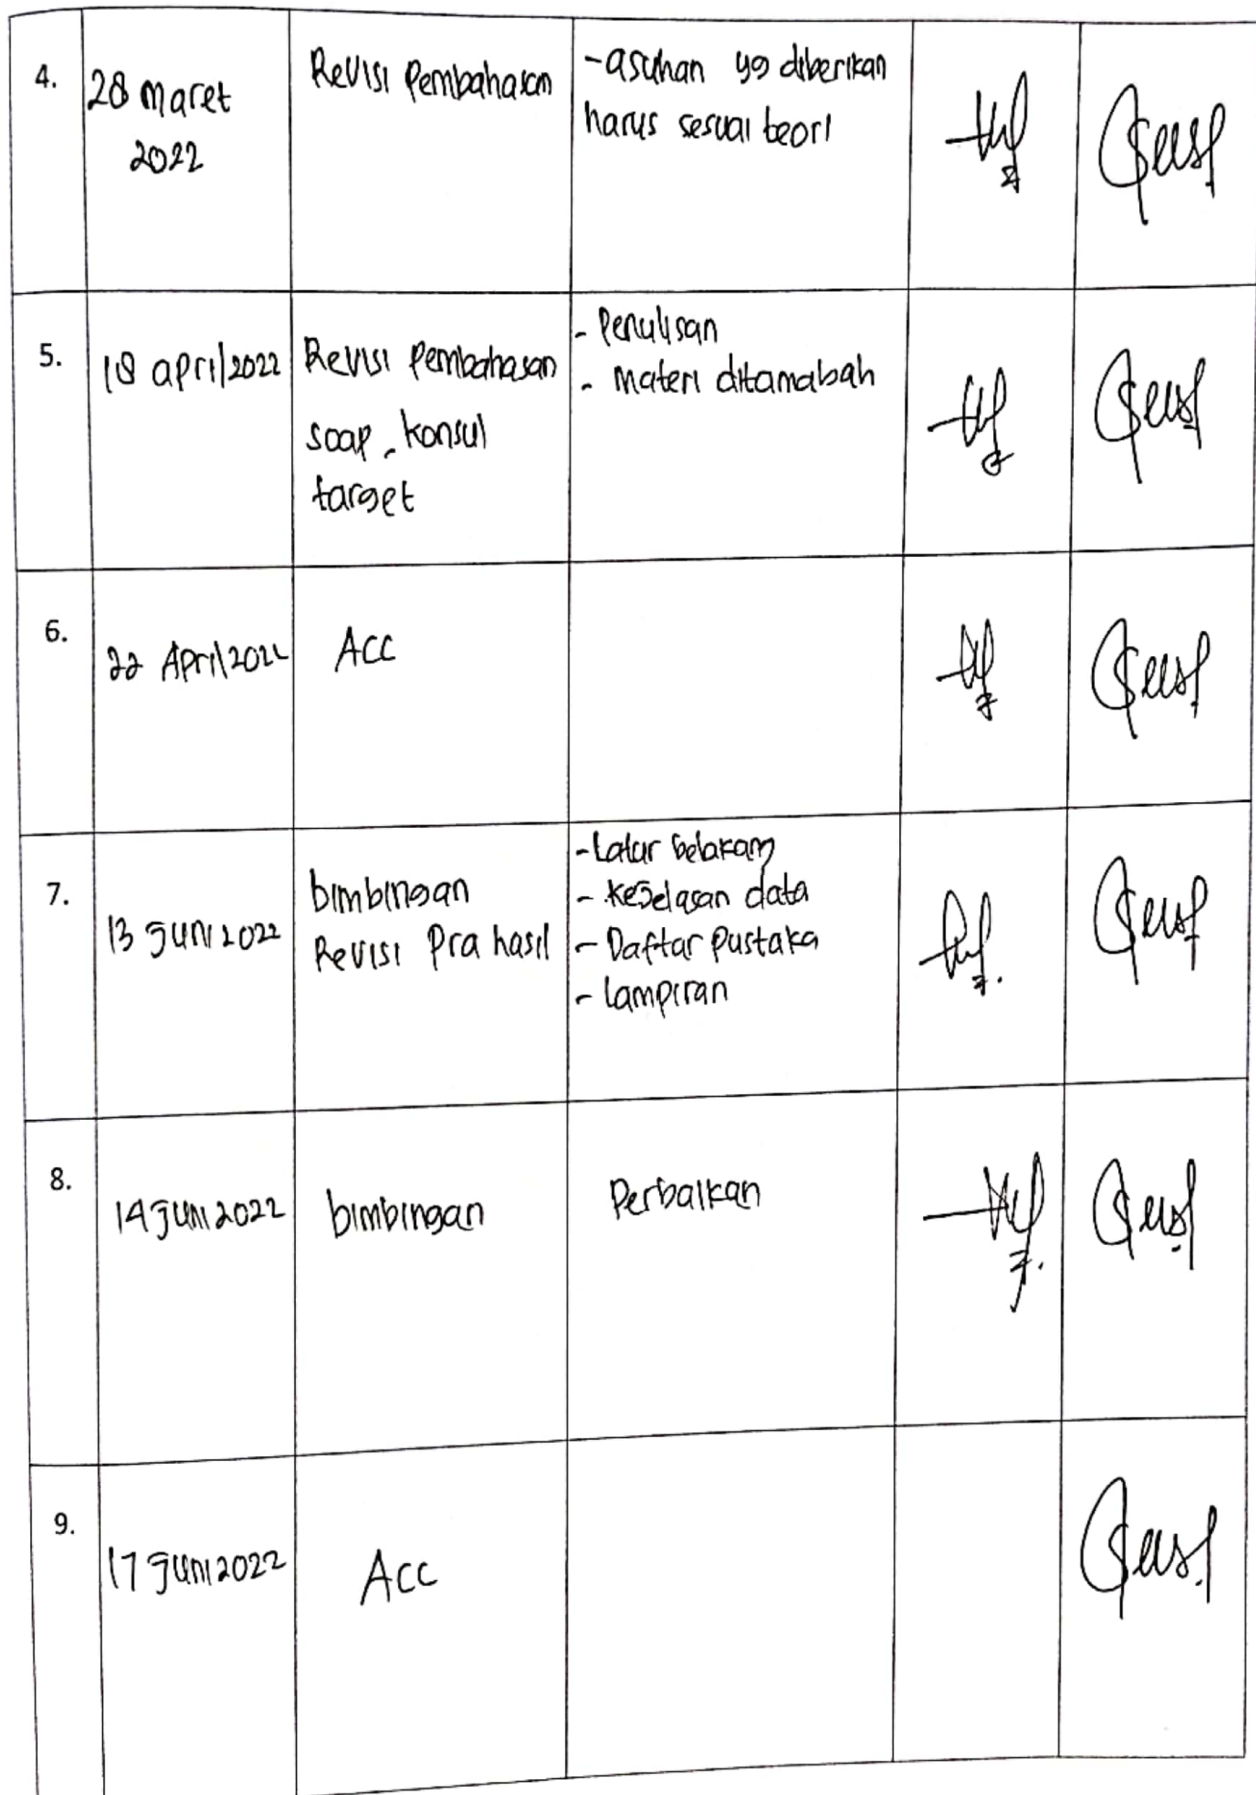 4.
28 maret
2022
Revisi Pembahasan
-asuhan yg diberikan
harus sesuai teori
5.
18 april 2022
Revisi Pembahasan
soap, konsul
target
- Penulisan
- Materi ditamabah
6.
22 April 2022
Acc
7.
13 Juni 2022
bimbingan
Revisi Pra hasil
-Latar belakang
- Kejelasan data
- Daftar Pustaka
- Lampiran
8.
14 Juni 2022
bimbingan
Perbaikan
9.
17 Juni 2022
Acc